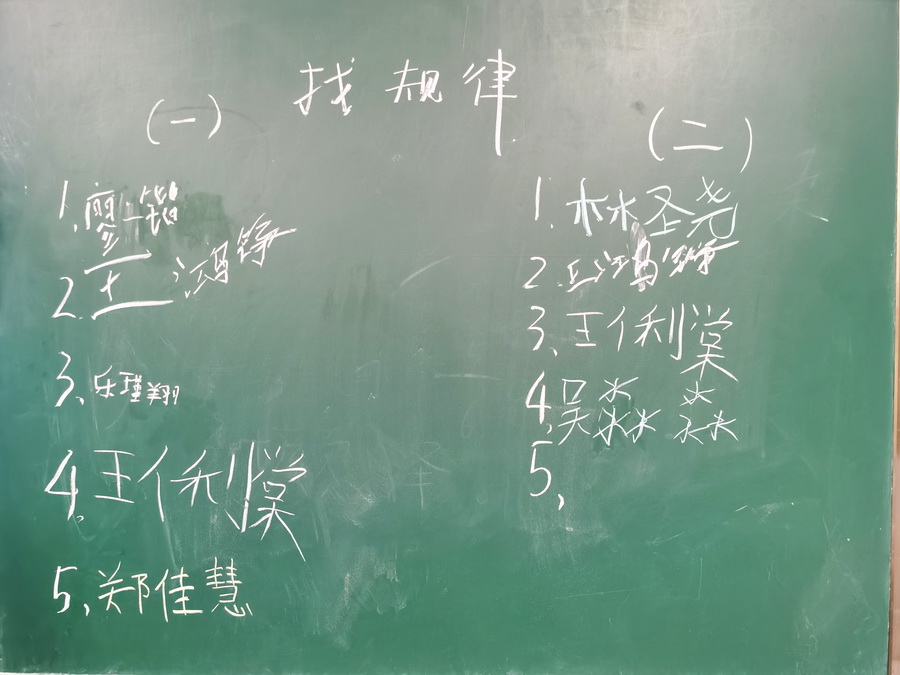 找规律
(一)
1.廖一锴
2.王鸿铮
3、乐瑾翔
4、王俐棠
5、郑佳慧
(二)
1.林圣尧
2.丘鸿铮
3、王俐棠
4、吴淼淼
5、